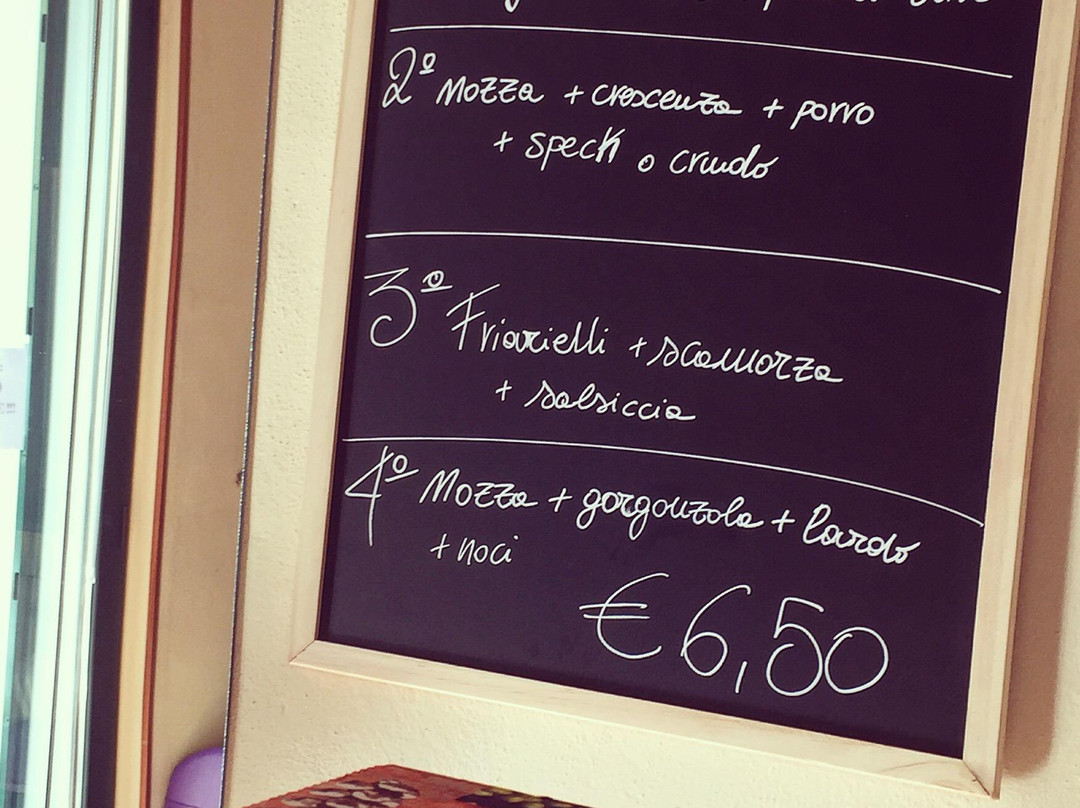 2º Mozza + crescenza + porro
+ speck o crudo
3º Friarielli + scamorza
+ salsiccia
4º Mozza + gorgonzola + lardo
+ noci
€ 6,50